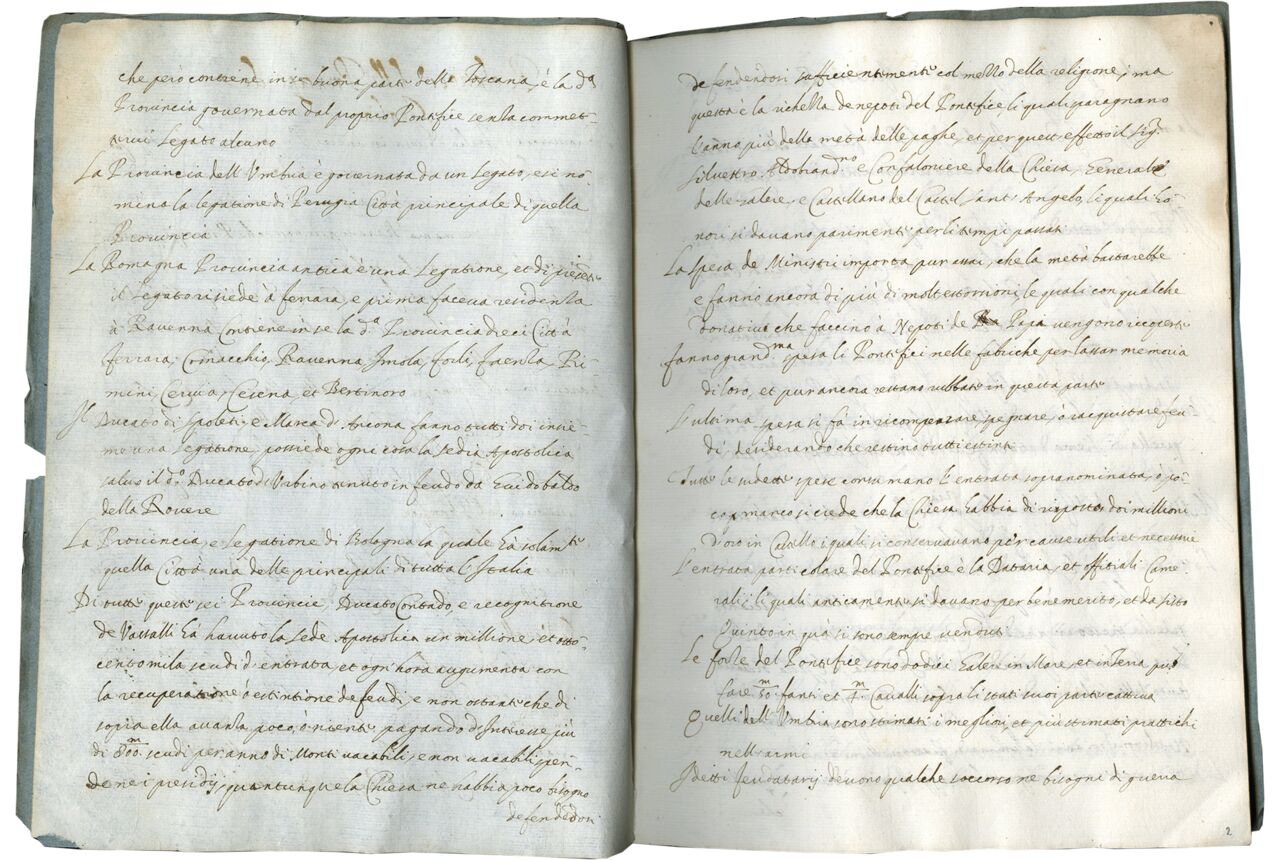 che però contiene in se buona parte della Toscana, è la d.ª
Provincia governata dal proprio Pontifice senza commet-
tervi Legato alcuno
La Provincia dell'Umbria è governata da un Legato, e si no-
mina la legatione di Perugia Città principale di quella
Provincia
La Romagna Provincia antica è una Legatione, et di presente
il Legato risiede à Ferrara, e prima faceva residenza
à Ravenna Contiene in se la d.ª Provincia dieci Città
Ferrara, Comacchio, Ravenna Imola, forlì, faenza, Ri-
mini, Cervia, Cesena, et Bertinoro
Il Ducato di Spoleti e Marca d'Ancona fanno tutti doi insie-
me una Legatione, possiede ogni cosa la Sedia Apostolica
salvo il d.º Ducato di Urbino tenuto in feudo da Guidobaldo
della Rovere
La Provincia, e Legatione di Bologna la quale hà solam.te
quella Città una delle principali di tutta l'Italia
Di tutte queste sei Provincie, Ducato Contado, e recognitione
de Vassalli hà havuto la Sede Apostolica un millione, et otto-
cento mila scudi d'entrata, et ogn'hora augumenta con
la recuperatione ò estintione de feudi, e non ostante che di
sopra ella avanza poco, ò niente, pagando d'Interesse più
di 800.m scudi per anno di Monti vacabili, e non vacabili spen-
de nei presidij, quantunque la Chiesa ne habbia poco bisogno
defendedosi
defendentosi sufficientemente col mezzo della religione, ma
questa è la richezza de nepoti del Pontifice, li quali
l'anno più della metà delle paghe, et per questo effetto il Sig.
Silvestro Aldobrand.no e Confaloniere della Chiesa, Generale
delle galere, e Castellano del Castel sant'Angelo, li quali ho-
nori si davano parimente per li tempi passati
La spesa de Ministri importa pur assai, che la metà bastarebbe
e fanno ancora di più di molte estorsioni, le quali con qualche
donativo che faccino à Nepoti de Papa vengono ricoperte
fanno grand.ma spesa li Pontifici nelle fabriche per lassar memoria
di loro, et pur ancora restano rubbati in questa parte
L'ultima spesa si fà in ricomperare, pegnare, ò racquistare feu-
di, desiderando che restino tutti estinti
Tutte le sudette spese consumano l'entrata sopranominata, ò po-
co manco si crede che la Chiesa habbia di riposto doi millioni
d'oro in Castello, i quali si conservavano per cause utili et necessarie
L'entrata particolare del Pontifice è la Dataria, et offitiali Came-
rali, li quali anticamente si davano per benemerito, et da Sisto
Quinto in quà si sono sempre venduti
Le forze del Pontifice sono dodici Galere in Mare, et in Terra può
fare 50.m fanti et 4.m Cavalli sopra li stati suoi parte cattiva
Quelli dell'Umbria sono stimati i megliori, et più stimati prattichi
nell'armi
I detti feudatarij devono qualche soccorso ne bisogni di guerra
2